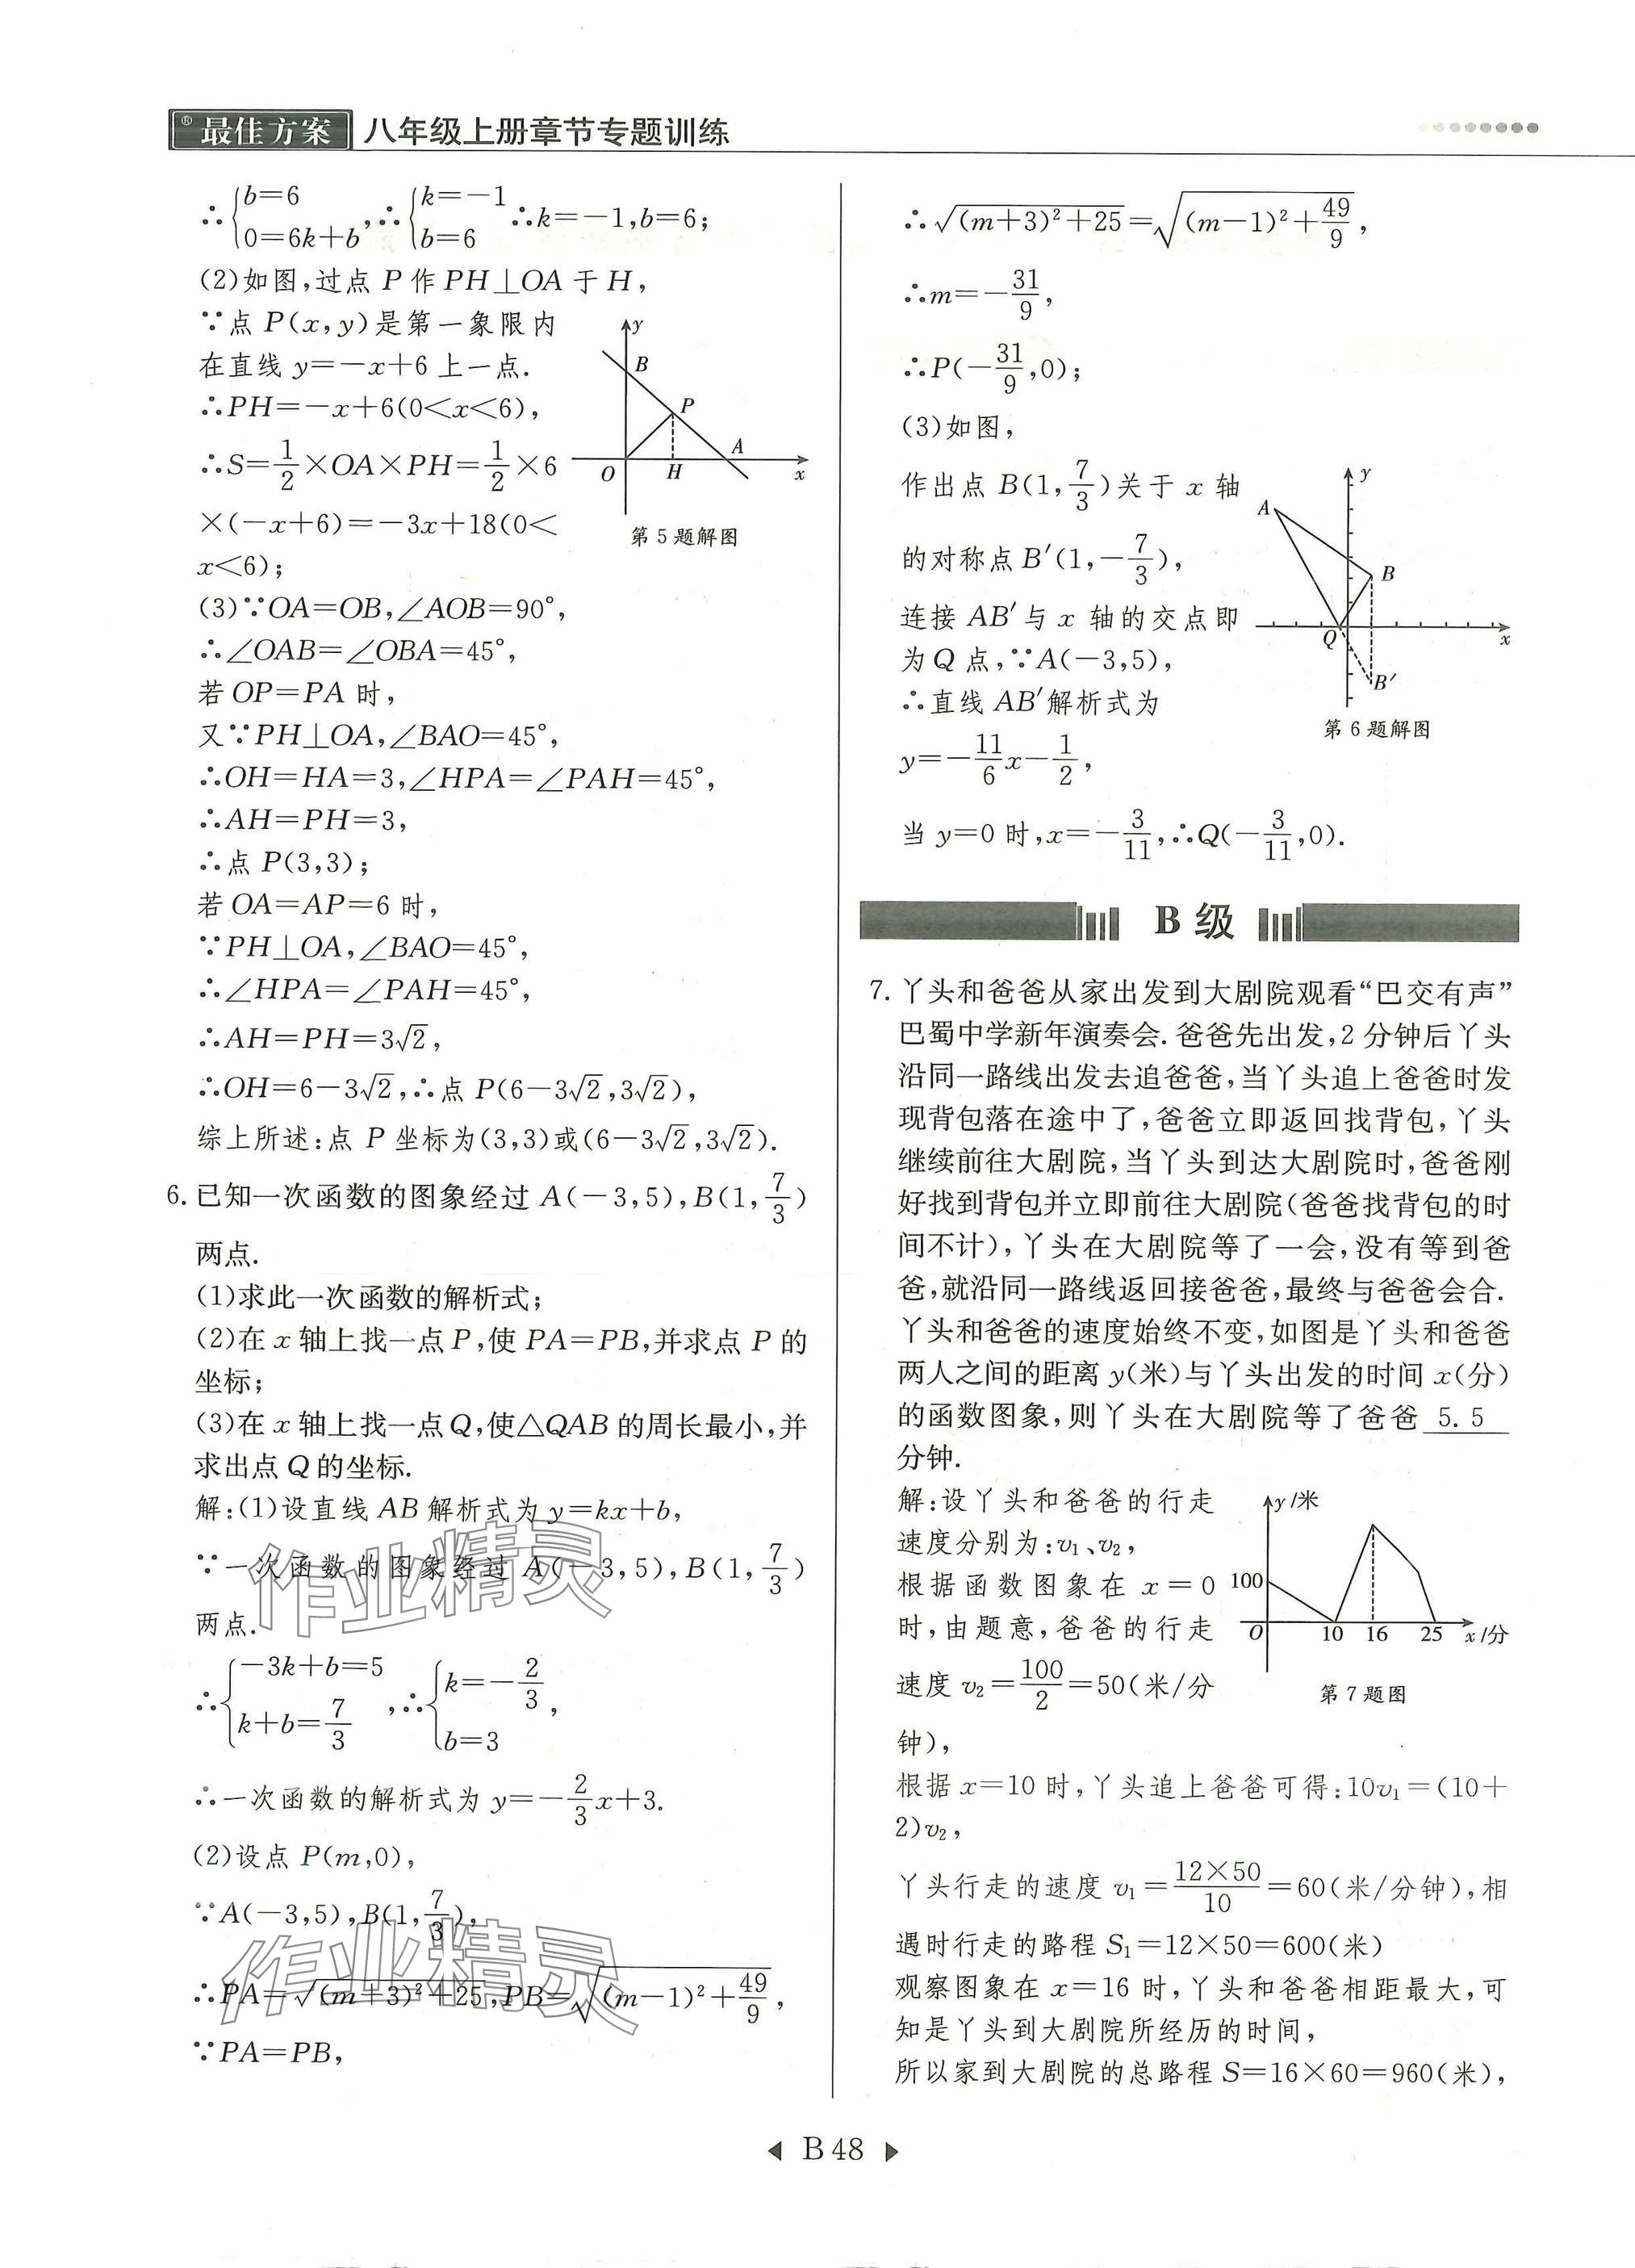 ®最佳方案 八年级上册章节专题训练
∴{b=6, 0=6k+b,∴{k=-1, b=6 ∴k=-1,b=6;
(2)如图,过点 P 作 PH⊥OA 于 H,
∵点 P(x,y)是第一象限内
在直线 y=-x+6 上一点.
∴PH=-x+6(0<x<6),
∴S=1/2×OA×PH=1/2×6
×(-x+6)=-3x+18(0<
x<6);
y
B
P
A
O
H
x
第5题解图
(3)∵OA=OB,∠AOB=90°,
∴∠OAB=∠OBA=45°,
若 OP=PA 时,
又∵PH⊥OA,∠BAO=45°,
∴OH=HA=3,∠HPA=∠PAH=45°,
∴AH=PH=3,
∴点 P(3,3);
若 OA=AP=6 时,
∵PH⊥OA,∠BAO=45°,
∴∠HPA=∠PAH=45°,
∴AH=PH=3√2,
∴OH=6-3√2,∴点 P(6-3√2,3√2),
综上所述:点 P 坐标为(3,3)或(6-3√2,3√2).
6. 已知一次函数的图象经过 A(-3,5),B(1,7/3)
两点.
(1)求此一次函数的解析式;
(2)在 x 轴上找一点 P,使 PA=PB,并求点 P 的
坐标;
(3)在 x 轴上找一点 Q,使△QAB 的周长最小,并
求出点 Q 的坐标.
解:(1)设直线 AB 解析式为 y=kx+b,
∵一次函数的图象经过 A(-3,5),B(1,7/3)
两点.
∴{-3k+b=5, k+b=7/3,∴{k=-2/3, b=3,
∴一次函数的解析式为 y=-2/3x+3.
(2)设点 P(m,0),
∵A(-3,5),B(1,7/3),
∴PA=√((m+3)²+25),PB=√((m-1)²+49/9),
∵PA=PB,
作业精灵
作业精灵
∴√((m+3)²+25)=√((m-1)²+49/9),
∴m=-31/9,
∴P(-31/9,0);
(3)如图,
作出点 B(1,7/3)关于 x 轴
的对称点 B′(1,-7/3),
连接 AB′与 x 轴的交点即
为 Q 点,∵A(-3,5),
∴直线 AB′解析式为
y=-11/6x-1/2,
当 y=0 时,x=-3/11,∴Q(-3/11,0).
y
A
B
Q
x
B′
第6题解图
B 级
7. 丫头和爸爸从家出发到大剧院观看“巴交有声”
巴蜀中学新年演奏会.爸爸先出发,2 分钟后丫头
沿同一路线出发去追爸爸,当丫头追上爸爸时发
现背包落在途中了,爸爸立即返回找背包,丫头
继续前往大剧院,当丫头到达大剧院时,爸爸刚
好找到背包并立即前往大剧院(爸爸找背包的时
间不计),丫头在大剧院等了一会,没有等到爸
爸,就沿同一路线返回接爸爸,最终与爸爸会合.
丫头和爸爸的速度始终不变,如图是丫头和爸爸
两人之间的距离 y(米)与丫头出发的时间 x(分)
的函数图象,则丫头在大剧院等了爸爸 5.5
分钟.
解:设丫头和爸爸的行走
速度分别为:v₁、v₂,
根据函数图象在 x=0
时,由题意,爸爸的行走
速度 v₂=100/2=50(米/分
钟),
y/米
100
O
10
16
25
x/分
第7题图
根据 x=10 时,丫头追上爸爸可得:10v₁=(10+
2)v₂,
丫头行走的速度 v₁=12×50/10=60(米/分钟),相
遇时行走的路程 S₁=12×50=600(米)
观察图象在 x=16 时,丫头和爸爸相距最大,可
知是丫头到大剧院所经历的时间,
所以家到大剧院的总路程 S=16×60=960(米),
B 48